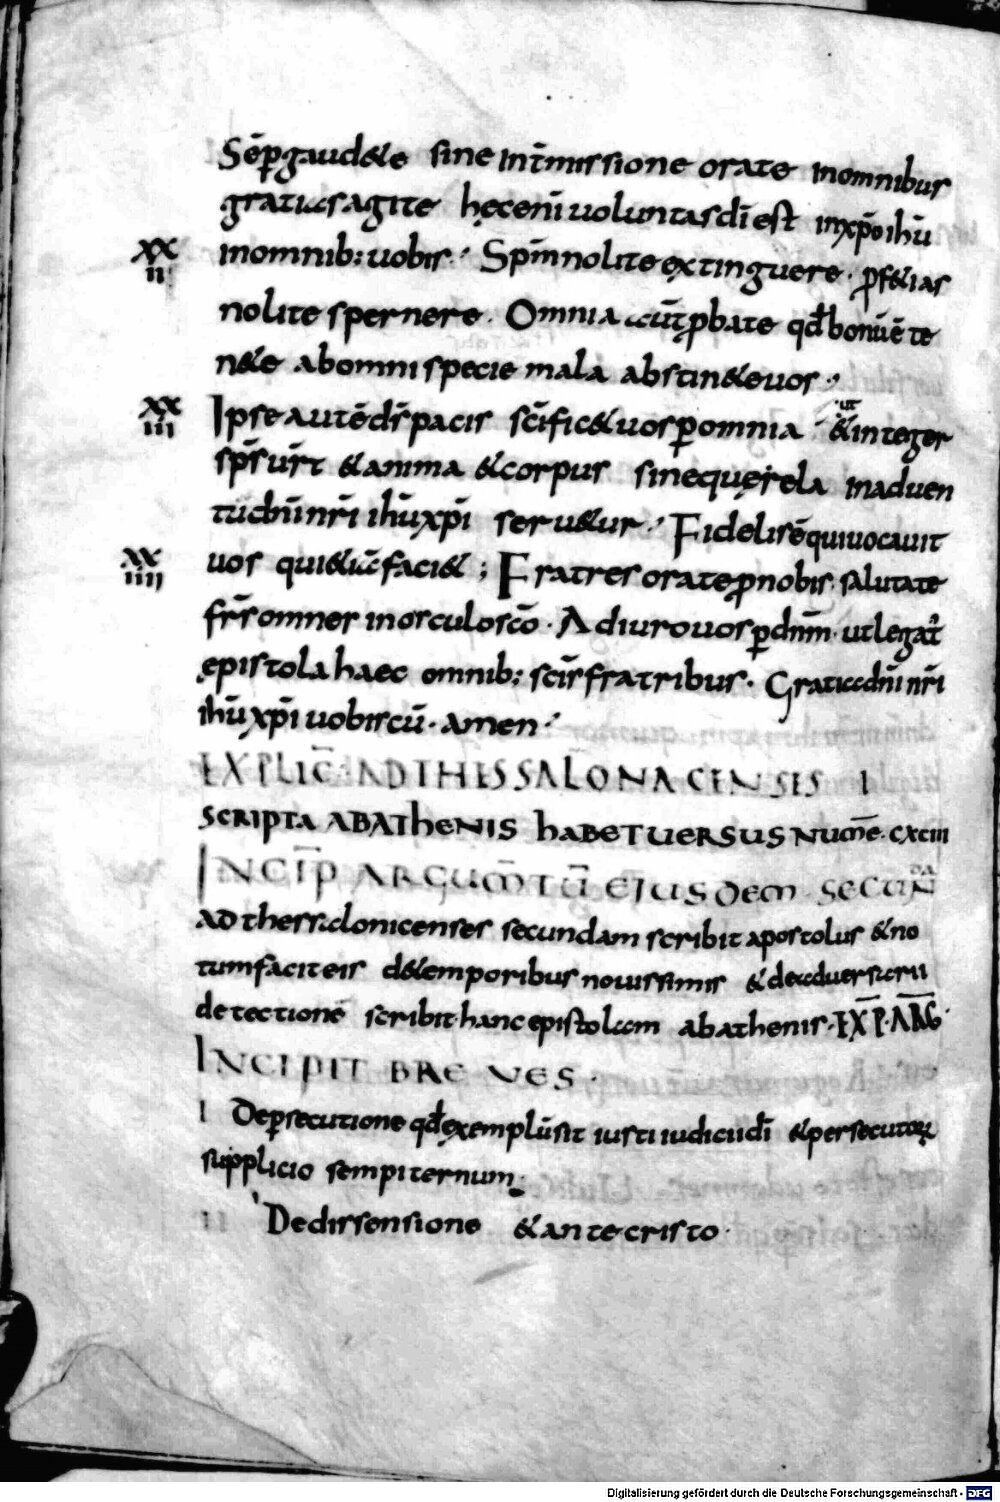 Sēp gaud&e sine int̄missione orate inomnibus
gratias agite hęc enī uoluntas dī est inxp̄o ihū
XX
II
inomnib; uobis. Sp̄m nolite extinguere. ꝓf&ias
nolite spernere. Omnia aūt ꝓbate qđ bonū ē te
n&e ab omni specie mala abstin&e uos.
XX
III
Ipse autē d̄s pacis sc̄ific& uos ꝑ omnia ut & integer
sp̄s ur̄t & anima & corpus sine querela in aduen
tu dn̄i nr̄i ihū xp̄i seru&ur. Fidelis ē qui uocauit
XX
IIII
uos qui &iā faci&; Fratres orate ꝓ nobis salutate
fr̄s omnes in osculo sc̄o. Adiuro uos ꝑ dn̄m. ut legat̄
epistola haec omnib; sc̄is fratribus. Gratia dn̄i nr̄i
ihū xp̄i uobis cū. amen
EXPLIC̄ AD THESSALONACENSIS I
SCRIPTA ABATHENIS HABET UERSUS NUM̄E. CXCIII
INCIP̄ ARGUM̄TŪ EIUSDEM SECUNDA
AD thessalonicenses secundam scribit apostolus & no
tum facit eis d& emporibus nouissimis & de aduersarii
detectionē scribit hanc epistolam abathenis. EXP̄. ARḠ
INCIPIT BREVES.
I De ꝑsecutione qđ exemplū sit iusti iudicii dī & persecutorꝝ
supplicio sempiternum
II De dissensione & antecristo.
Digitalisierung gefördert durch die Deutsche Forschungsgemeinschaft - DFG